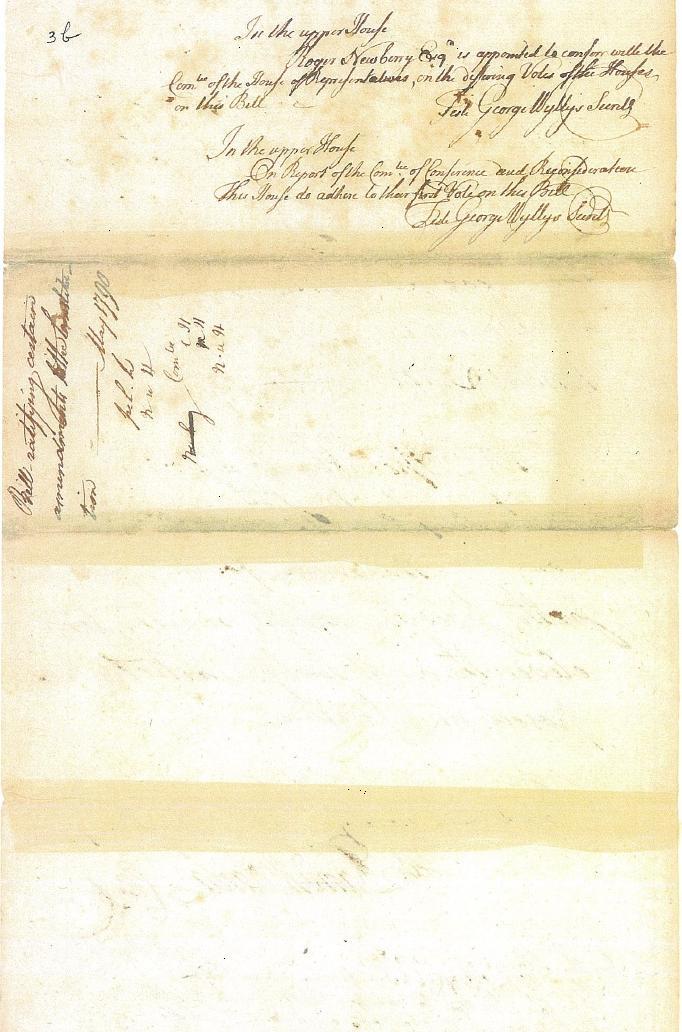 3b
In the upper House
Roger Newberry Esqr is appointed to conferr with the
Comtee of the House of Representatives, on the differing Votes of the Houses
on this Bill
Test George Wyllys Secrety
In the upper House
On Report of the Comtee of Conference and Reconsideration
This House do adhere to their first Vote on this Bill
Teste George Wyllys Secrety
Bill ratifying certain
amendments to the Constitu
tion
May 1790
p l. h
n u H
Comtee
c H
n u H